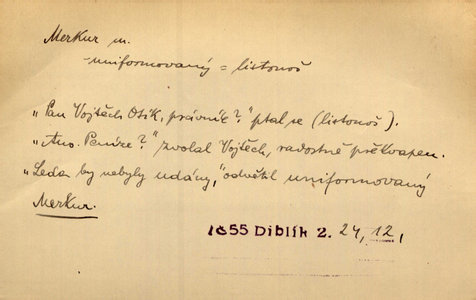 Merkur m.
- uniformovaný = listonoš
„Pan Vojtěch Otík, právník?" ptal se (listonoš).
„Ano. Peníze?" zvolal Vojtěch, radostně překvapen.
„Leda by nebyly udány," odvětil uniformovaný
Merkur.
1655 Diblík 2. 24, 12,